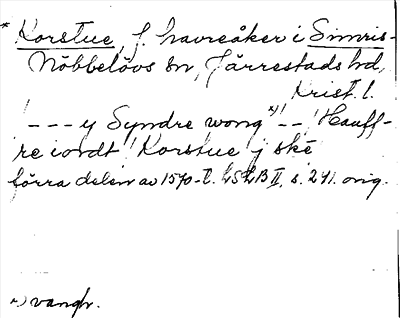 * Korstue, f. havreåker i Simris-
Nöbbelövs sn, Järrestads hd,
Krist. l.
--- y Syndre wong x) -- ! Hauff-
re iordt ! Korstue j ske
förra delen av 1570-t. LSLB II, s. 241. orig.
x) vangr.